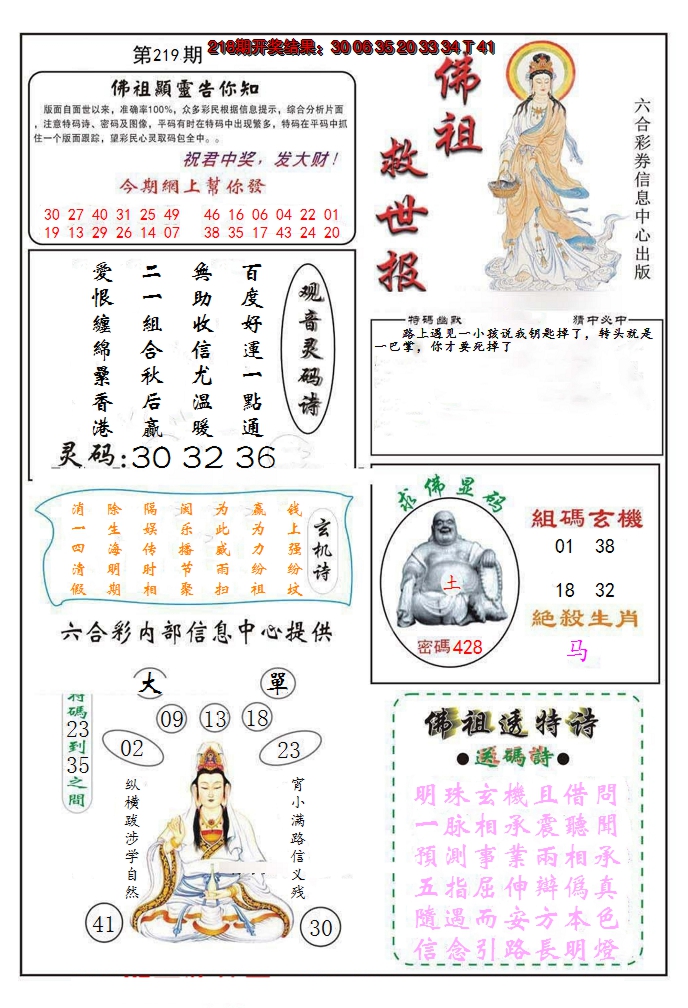 第219期
218期开奖结果：30 06 35 20 33 34 T 41
佛祖顯靈告你知
版面自面世以来，准确率100%，众多彩民根据信息提示，综合分析片面
，注意特码诗、密码及图像，平码有时在特码中出现繁多，特码在平码中抓
住一个版面跟踪，望彩民心灵取码包全中。。
祝君中奖，发大财！
今期網上幫你發
30 27 40 31 25 49 46 16 06 04 22 01
19 13 29 26 14 07 38 35 17 43 24 20
佛祖
救世报
六合彩券信息中心出版
观音灵码诗
百度好運一點通
無助收信尤温暖
二一組合秋后赢
愛恨纏綿纍香港
灵码:30 32 36
特碼幽默
猜中必中
路上遇见一小孩说我钥匙掉了，转头就是
一巴掌，你才要死掉了
玄机诗
钱上强纷坟
赢为力纷祖
为此威雨扫
闵乐播节聚
隔娱传时相
除生海明期
消一四清假
六合彩内部信息中心提供
求佛显码
土
密碼428
組碼玄機
01 38
18 32
絕殺生肖
马
大
單
09
13
18
02
23
特碼23到35之間
纵横跋涉学自然
宵小满路信义残
41
30
佛祖透特诗
●送碼詩●
明珠玄機且借問
一脉相承震聽聞
預測事業兩相承
五指屈伸辯僞真
隨遇而安方本色
信念引路長明燈